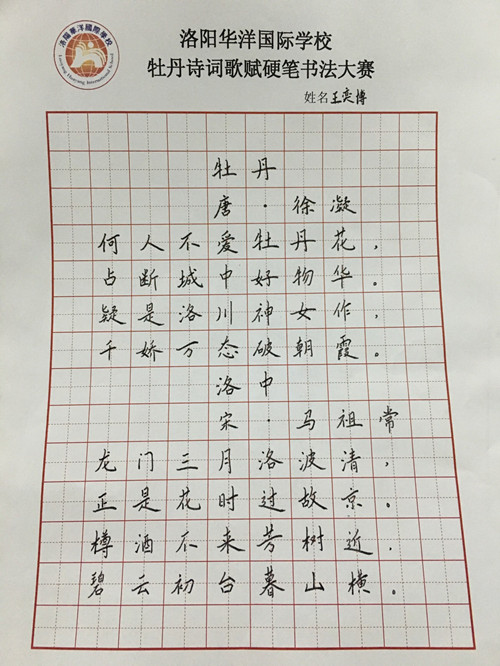 洛陽華洋國際學校
Luoyang Huayang International School
洛阳华洋国际学校
牡丹诗词歌赋硬笔书法大赛
姓名王奕博
牡丹
唐·徐凝
何人不爱牡丹花，
占断城中好物华。
疑是洛川神女作，
千娇万态破朝霞。
洛中
宋·马祖常
龙门三月洛波清，
正是花时过故京。
樽酒不来芳树近，
碧云初台暮山横。